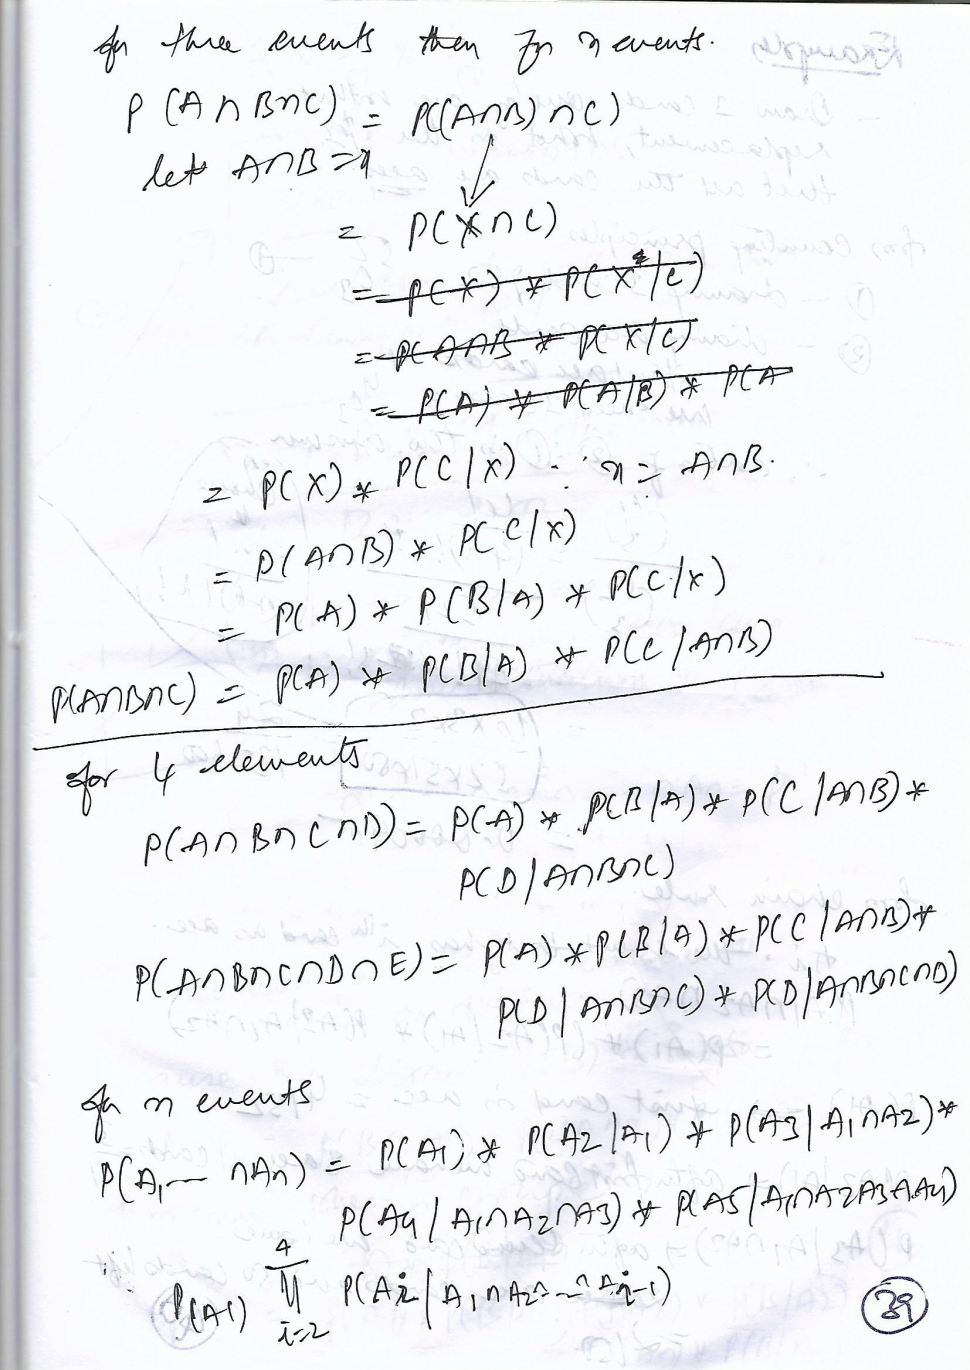 for three events then for n events.
P(A∩B∩C) = P((A∩B)∩C)
let A∩B = x
= P(X∩C)
= P(X) * P(X/C)
= P(A∩B * P(X/C)
= P(A) * P(A/B) * P(A
= P(X) * P(C/X) ∵ x = A∩B.
= P(A∩B) * P(C/X)
= P(A) * P(B/A) * P(C/X)
P(A∩B∩C) = P(A) * P(B/A) * P(C/A∩B)
for 4 elements
P(A∩B∩C∩D) = P(A) * P(B/A) * P(C/A∩B) *
P(D/A∩B∩C)
P(A∩B∩C∩D∩E) = P(A) * P(B/A) * P(C/A∩B) *
P(D/A∩B∩C) * P(D/A∩B∩C∩D)
for n events
P(A1 --- ∩An) = P(A1) * P(A2/A1) * P(A3/A1∩A2) *
P(A4/A1∩A2∩A3) * P(A5/A1∩A2A3∩A4)
∴ P(A1) 4 Π i=2 P(Ai/A1∩A2∩---∩Ai-1)
39